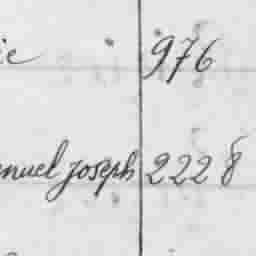 ie 976
nuel Joseph 2228